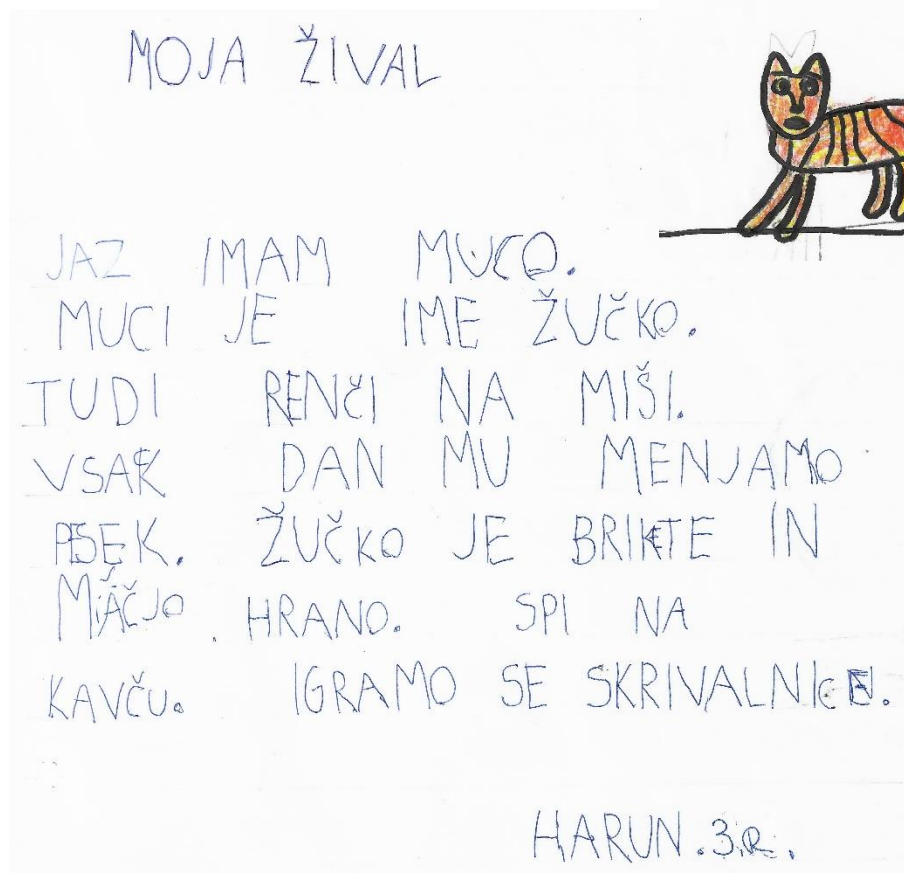 MOJA ŽIVAL
JAZ IMAM MUCO.
MUCI JE IME ŽUČKO.
TUDI RENČI NA MIŠI.
VSAK DAN MU MENJAMO
PESEK. ŽUČKO JE BRIKETE IN
MAČJO HRANO. SPI NA
KAVČU. IGRAMO SE SKRIVALNICE.
HARUN.3.R.